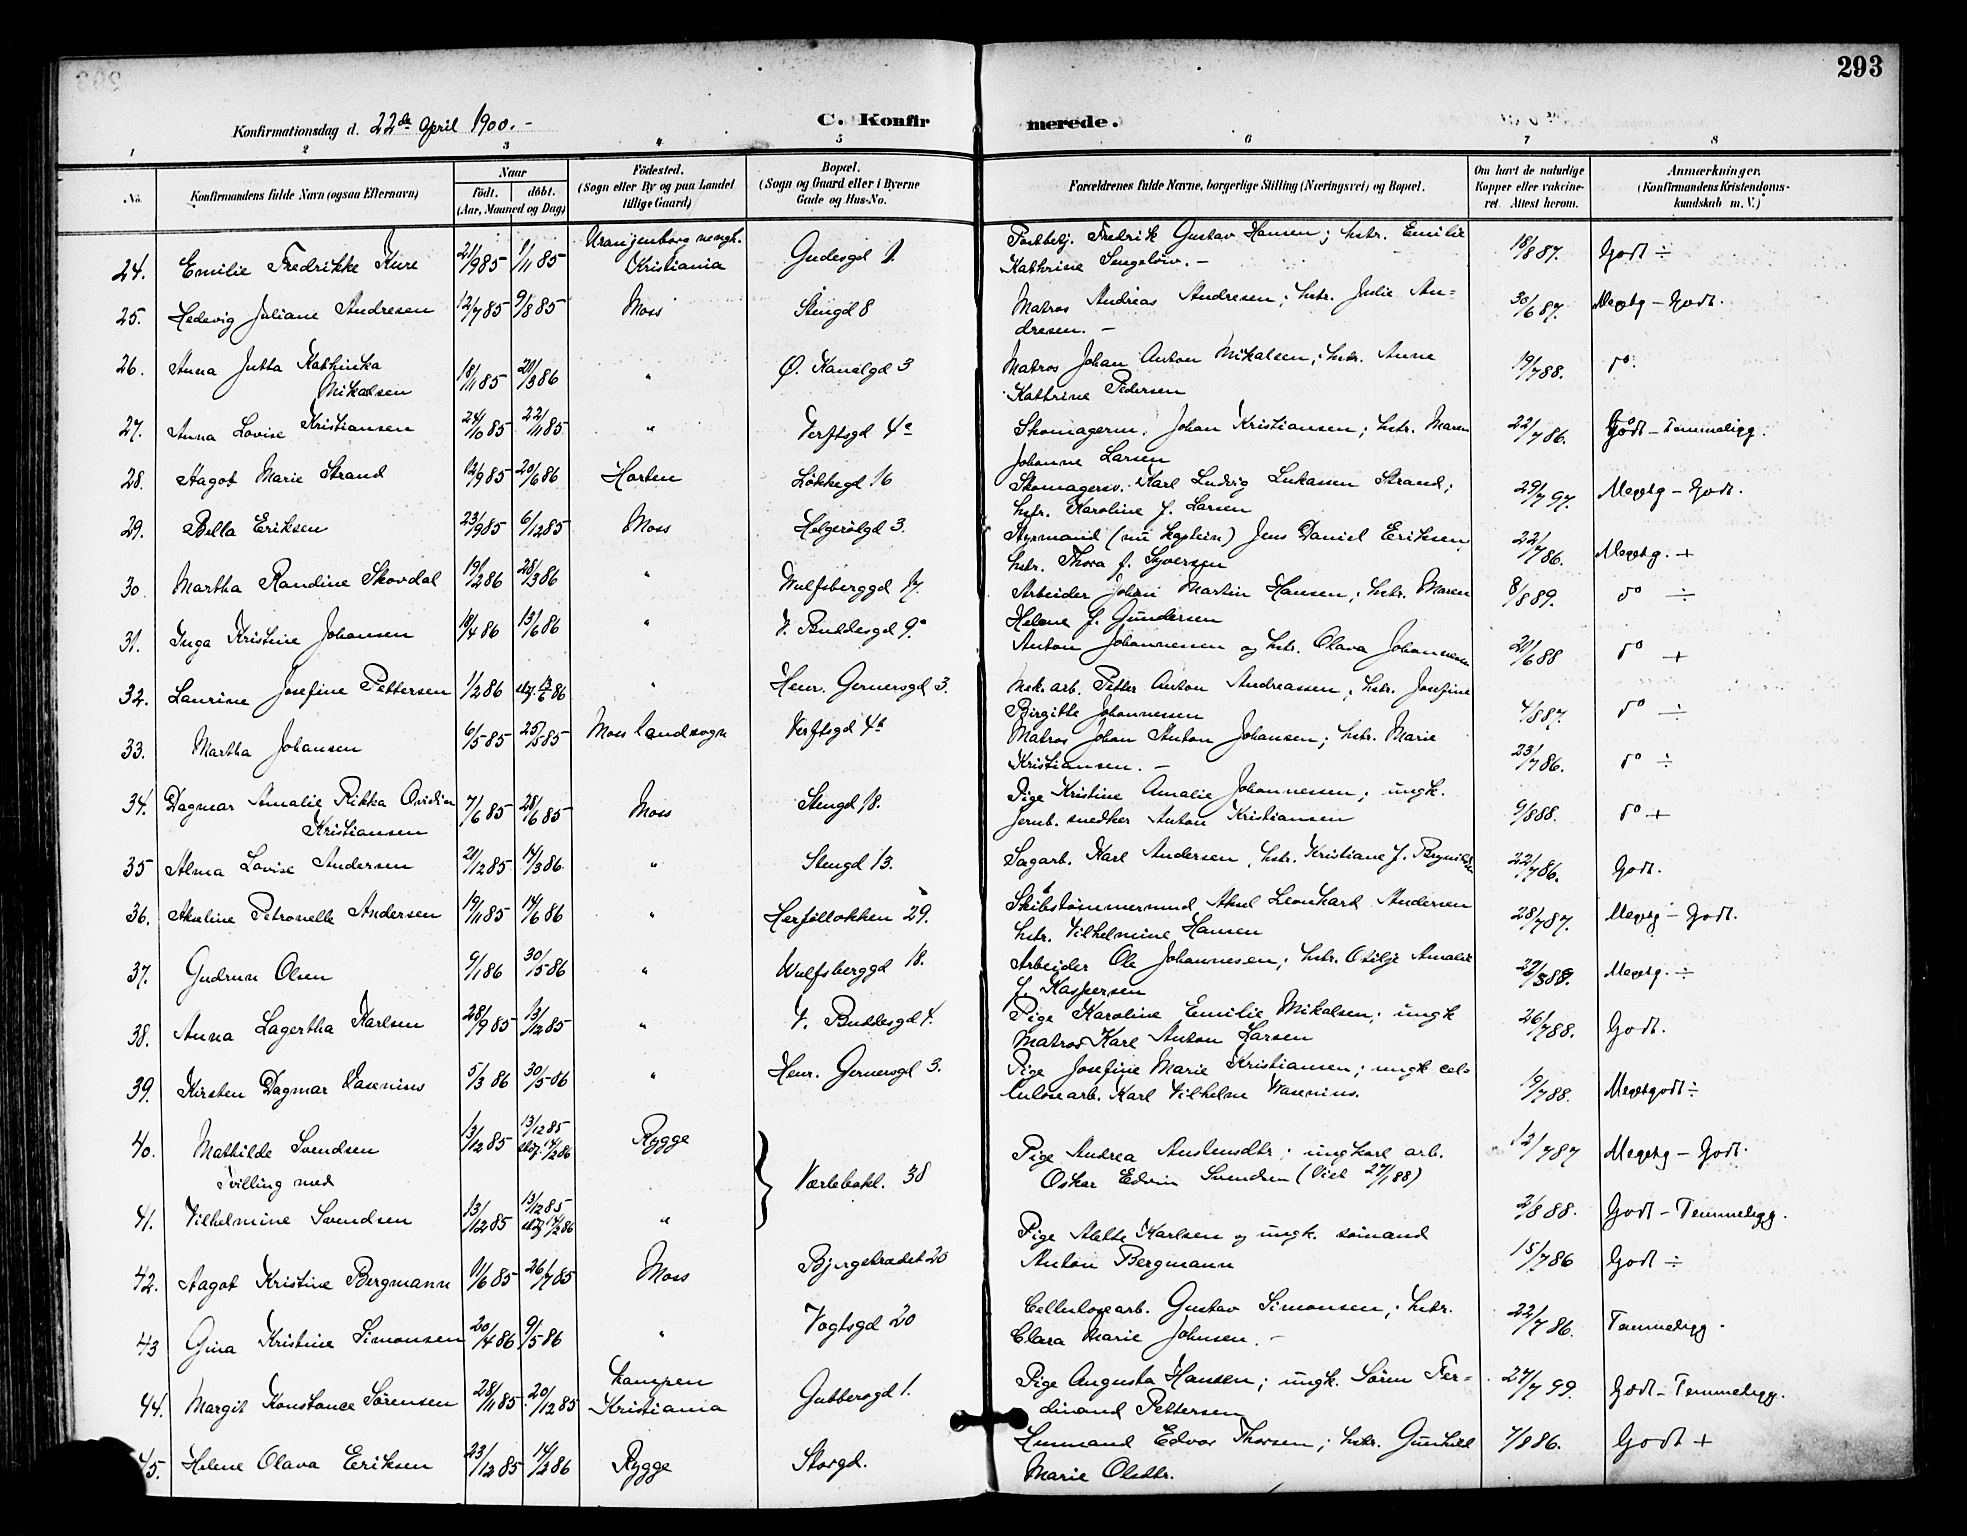 293
Konfirmationsdag d. 22de April 1900. -
C. Konfir
merede.
1 2 3 4 5 6 7 8
No.
Konfirmandens fulde Navn (ogsaa Efternavn)
Naar
födt. döbt.
(Aar, Maaned og Dag)
Födested.
(Sogn eller By og paa Landet
tillige Gaard)
Bopæl.
(Sogn og Gaard eller i Byerne
Gade og Hus-No.
Forældrenes fulde Navne, borgerlige Stilling (Næringsvei) og Bopæl.
Om havt de naturlige
Kopper eller vakcine-
ret. Attest herom.
Anmærkninger,
(Konfirmandens Kristendoms-
kundskab m. V.)
24. Emilie Fredrikke Kure 21/9 85 1/11 85 Uranjenborg menigh. Kristiania Gudesgd 1 Fredrik Gustav Hansen; hstr. Emilie
Kathrine - 18/8 87. Godt ÷
25. Hedevig Juliane Andresen 12/7 85 9/8 85 Moss Stengd 8 Matros Andreas Andresen; hstr. Julie An=
dresen. - 30/6 87. Megetg - Godt.
26. Anna Jutta Kathinka
Mikalsen 18/11 85 21/3 86 " Ø. Kanalgd 3 Matros Johan Anton Mikalsen; hstr. Anne
Kathrine Pedersen 19/7 88. do.
27. Anna Lovise Kristiansen 24/10 85 22/11 85 " Verftsgd 4a Skomagerm. Johan Kristiansen; hstr. Maren
Johanne Larsen 22/7 86. Godt - Temmeligg.
28. Aagot Marie Strand 12/9 85 20/6 86 Horten Løkkegd 16 Skomagersv. Karl Ludvig Lukassen Strand;
hstr. Karoline f. Larsen 29/7 97. Megetg - Godt.
29. Bella Eriksen 23/9 85 6/12 85 Moss Helgerødgd 3. Styrmand (nu kaptein) Jens Daniel Eriksen,
hstr. Thora f. Syversen 22/7 86. Megetg. +
30 Martha Randine Skovdal 19/2 86 28/3 86 " Wulfsberggd 17. Arbeider Johan Martin Hansen; hstr. Maren
Helene f. Gundersen 8/8 89. do ÷
31. Inga Kristine Johansen 18/4 86 13/6 86 " V. Buddesgd 9a Anton Johannessen og hstr. Olava Johannessen 20/6 88 do +
32. Laurine Josefine Pettersen 1/2 86 86 " Henr. Gernersgd 3. Mek. arb. Petter Anton Andreassen; hstr. Josefine
Birgitte Johannessen 4/8 87. do ÷
33. Martha Johansen 6/5 85 25/5 85 Moss landsogn Verftsgd 4b Matros Johan Anton Johansen; hstr. Marie
Kristiansen. - 23/7 86. do ÷
34. Dagmar Amalie Rikka Ovidia
Kristiansen 7/6 85 28/6 85 Moss Stengd 18. Pige Kristine Amalie Johannessen; ungk.
Jernb. snedker Anton Kristiansen 9/8 88. do +
35 Alma Lovise Andersen 21/12 85 14/3 86 " Stengd 13. Sagarb. Karl Andersen, hstr. Kristiane f. 22/7 86. Godt.
36. Akseline Petronelle Andersen 19/11 85 14/6 86 " Herføllokken 29. Skibstømmermand Aksel Leonhard Andersen
hstr. Vilhelmine Hansen 28/7 87. Megetg - Godt.
37. Gudrun Olsen 9/1 86 30/5 86 " Wulfsberggd 18. Arbeider Ole Johannesen; hstr. Otilje Amalie
f. Kaspersen 88. Megetg. ÷
38. Anna Lagertha Karlsen 28/9 85 13/12 85 " V. Buddesgd 4. Pige Karoline Emilie Mikalsen; ungk
Matros Karl Anton Larsen 26/7 88. Godt.
39. Kirsten Dagmar Wasenius 5/3 86 30/5 86 " Henr. Gernersgd 3. Pige Josefine Marie Kristiansen; ungk cel=
lulosearb. Karl Vilhelm Wasenius. 19/7 88. Megetgodt ÷
40. Mathilde Svendsen 13/12 85 13/12 85 14/2 86 Rygge Værlebakl. 38 Pige Andrea ; ungkarl arb.
Oskar Edvin Svendsen (Viet 27/1 88) 12/7 87 Megetg - Godt.
Tvilling med
41. Vilhelmine Svendsen 13/12 85 13/12 85 14/2 86 " 2/8 88. Godt - Temmeligg.
42. Aagot Kristine Bergmann 11/6 85 26/7 85 Moss 20 Pige Alette Karlsen og ungk. sømand
Anton Bergmann 15/7 86 Godt ÷
43 Gina Kristine Simonsen 20/4 86 9/5 86 " Vogtsgd 20 Cellulosearb. Gustav Simonsen; hstr.
Clara Marie Johnsen. - 22/7 86. Temmeligg.
44. Margit Konstance Sørensen 28/11 85 20/12 85 Kampen
Kristiania Gubberogd 1. Pige Augusta Hansen; ungk. Søren Fer=
dinand Pettersen 27/7 99. Godt - Temmeligg.
45. Helene Olava Eriksen 23/12 85 14/2 86 Rygge Storgd. Husmand Edvor Thorsen; hstr. Gunhild
Marie Olsdtr. 7/8 86. Godt +